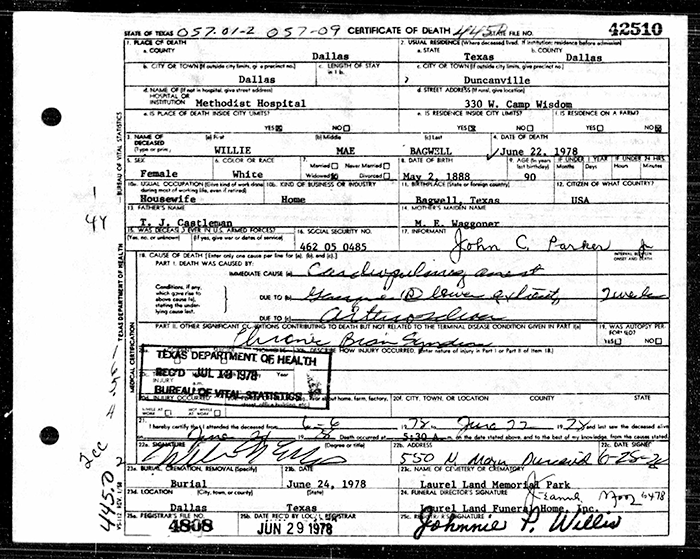 STATE OF TEXAS 057.01-2 057-09 CERTIFICATE OF DEATH 4450 STATE FILE NO. 42510
1. PLACE OF DEATH
a. COUNTY Dallas
2. USUAL RESIDENCE (Where deceased lived. If institution: residence before admission)
a. STATE Texas b. COUNTY Dallas
b. CITY OR TOWN (If outside city limits, give precinct no.) Dallas
c. LENGTH OF STAY in 1 b.
c. CITY OR TOWN (If outside city limits, give precinct no.) Duncanville
d. NAME OF (If not in hospital, give street address) HOSPITAL OR INSTITUTION Methodist Hospital
d. STREET ADDRESS (If rural, give location) 330 W. Camp Wisdom
e. IS PLACE OF DEATH INSIDE CITY LIMITS? YES NO
e. IS RESIDENCE INSIDE CITY LIMITS? YES NO
f. IS RESIDENCE ON A FARM? YES NO
3. NAME OF DECEASED (Type or print) (a) First WILLIE (b) Middle MAE (c) Last BAGWELL
4. DATE OF DEATH June 22, 1978
5. SEX Female
6. COLOR OR RACE White
7. Married Never Married Widowed Divorced
8. DATE OF BIRTH May 2, 1888
9. AGE (In years last birthday) 90
IF UNDER 1 YEAR
IF UNDER 24 HRS.
10a. USUAL OCCUPATION (Give kind of work done during most of working life, even if retired) Housewife
10b. KIND OF BUSINESS OR INDUSTRY Home
11. BIRTHPLACE (State or foreign country) Bagwell, Texas
12. CITIZEN OF WHAT COUNTRY? USA
13. FATHER'S NAME T. J. Castleman
14. MOTHER'S MAIDEN NAME M. E. Waggoner
15. WAS DECEASED EVER IN U.S. ARMED FORCES? (Yes, no, or unknown) (If yes, give war or dates of service)
16. SOCIAL SECURITY NO. 462 05 0485
17. INFORMANT John C. Parker Jr
18. CAUSE OF DEATH [Enter only one cause per line for (a), (b), and (c).]
INTERVAL BETWEEN ONSET AND DEATH
PART I. DEATH WAS CAUSED BY:
IMMEDIATE CAUSE (a) Cardiopulmonary arrest
Conditions, if any, which gave rise to above cause (a), stating the underlying cause last.
DUE TO (b) lower 2 weeks
DUE TO (c)
PART II. OTHER SIGNIFICANT CONDITIONS CONTRIBUTING TO DEATH BUT NOT RELATED TO THE TERMINAL DISEASE CONDITION GIVEN IN PART I(a)
Chronic Brain Syndrome
19. WAS AUTOPSY PERFORMED? YES NO
20b. DESCRIBE HOW INJURY OCCURRED. (Enter nature of injury in Part I or Part II of item 18.)
TEXAS DEPARTMENT OF HEALTH
REC'D JUL 18 1978
BUREAU OF VITAL STATISTICS
INJURY Year
20d. INJURY OCCURRED WHILE AT WORK NOT WHILE AT WORK
20f. CITY, TOWN, OR LOCATION COUNTY STATE
21. I hereby certify that I attended the deceased from 6-6 1978, to June 22 1978 and last saw the deceased alive
on June 1978. Death occurred at 5:30 A.m. on the date stated above, and to the best of my knowledge, from the causes stated.
22a. SIGNATURE (Degree or title)
22b. ADDRESS 550 N. Main
22c. DATE SIGNED
23a. BURIAL, CREMATION, REMOVAL (Specify) Burial
23b. DATE June 24, 1978
23c. NAME OF CEMETERY OR CREMATORY Laurel Land Memorial Park
23d. LOCATION (City, town, or county) (State) Dallas Texas
24. FUNERAL DIRECTOR'S SIGNATURE 6478
Laurel Land Funeral Home, Inc.
25a. REGISTRAR'S FILE NO. 4808
25b. DATE REC'D BY LOCAL REGISTRAR JUN 29 1978
25c. REGISTRAR'S SIGNATURE Johnnie P. Willis
TEXAS DEPARTMENT OF HEALTH - BUREAU OF VITAL STATISTICS
MEDICAL CERTIFICATION
1
44
2cc
4450